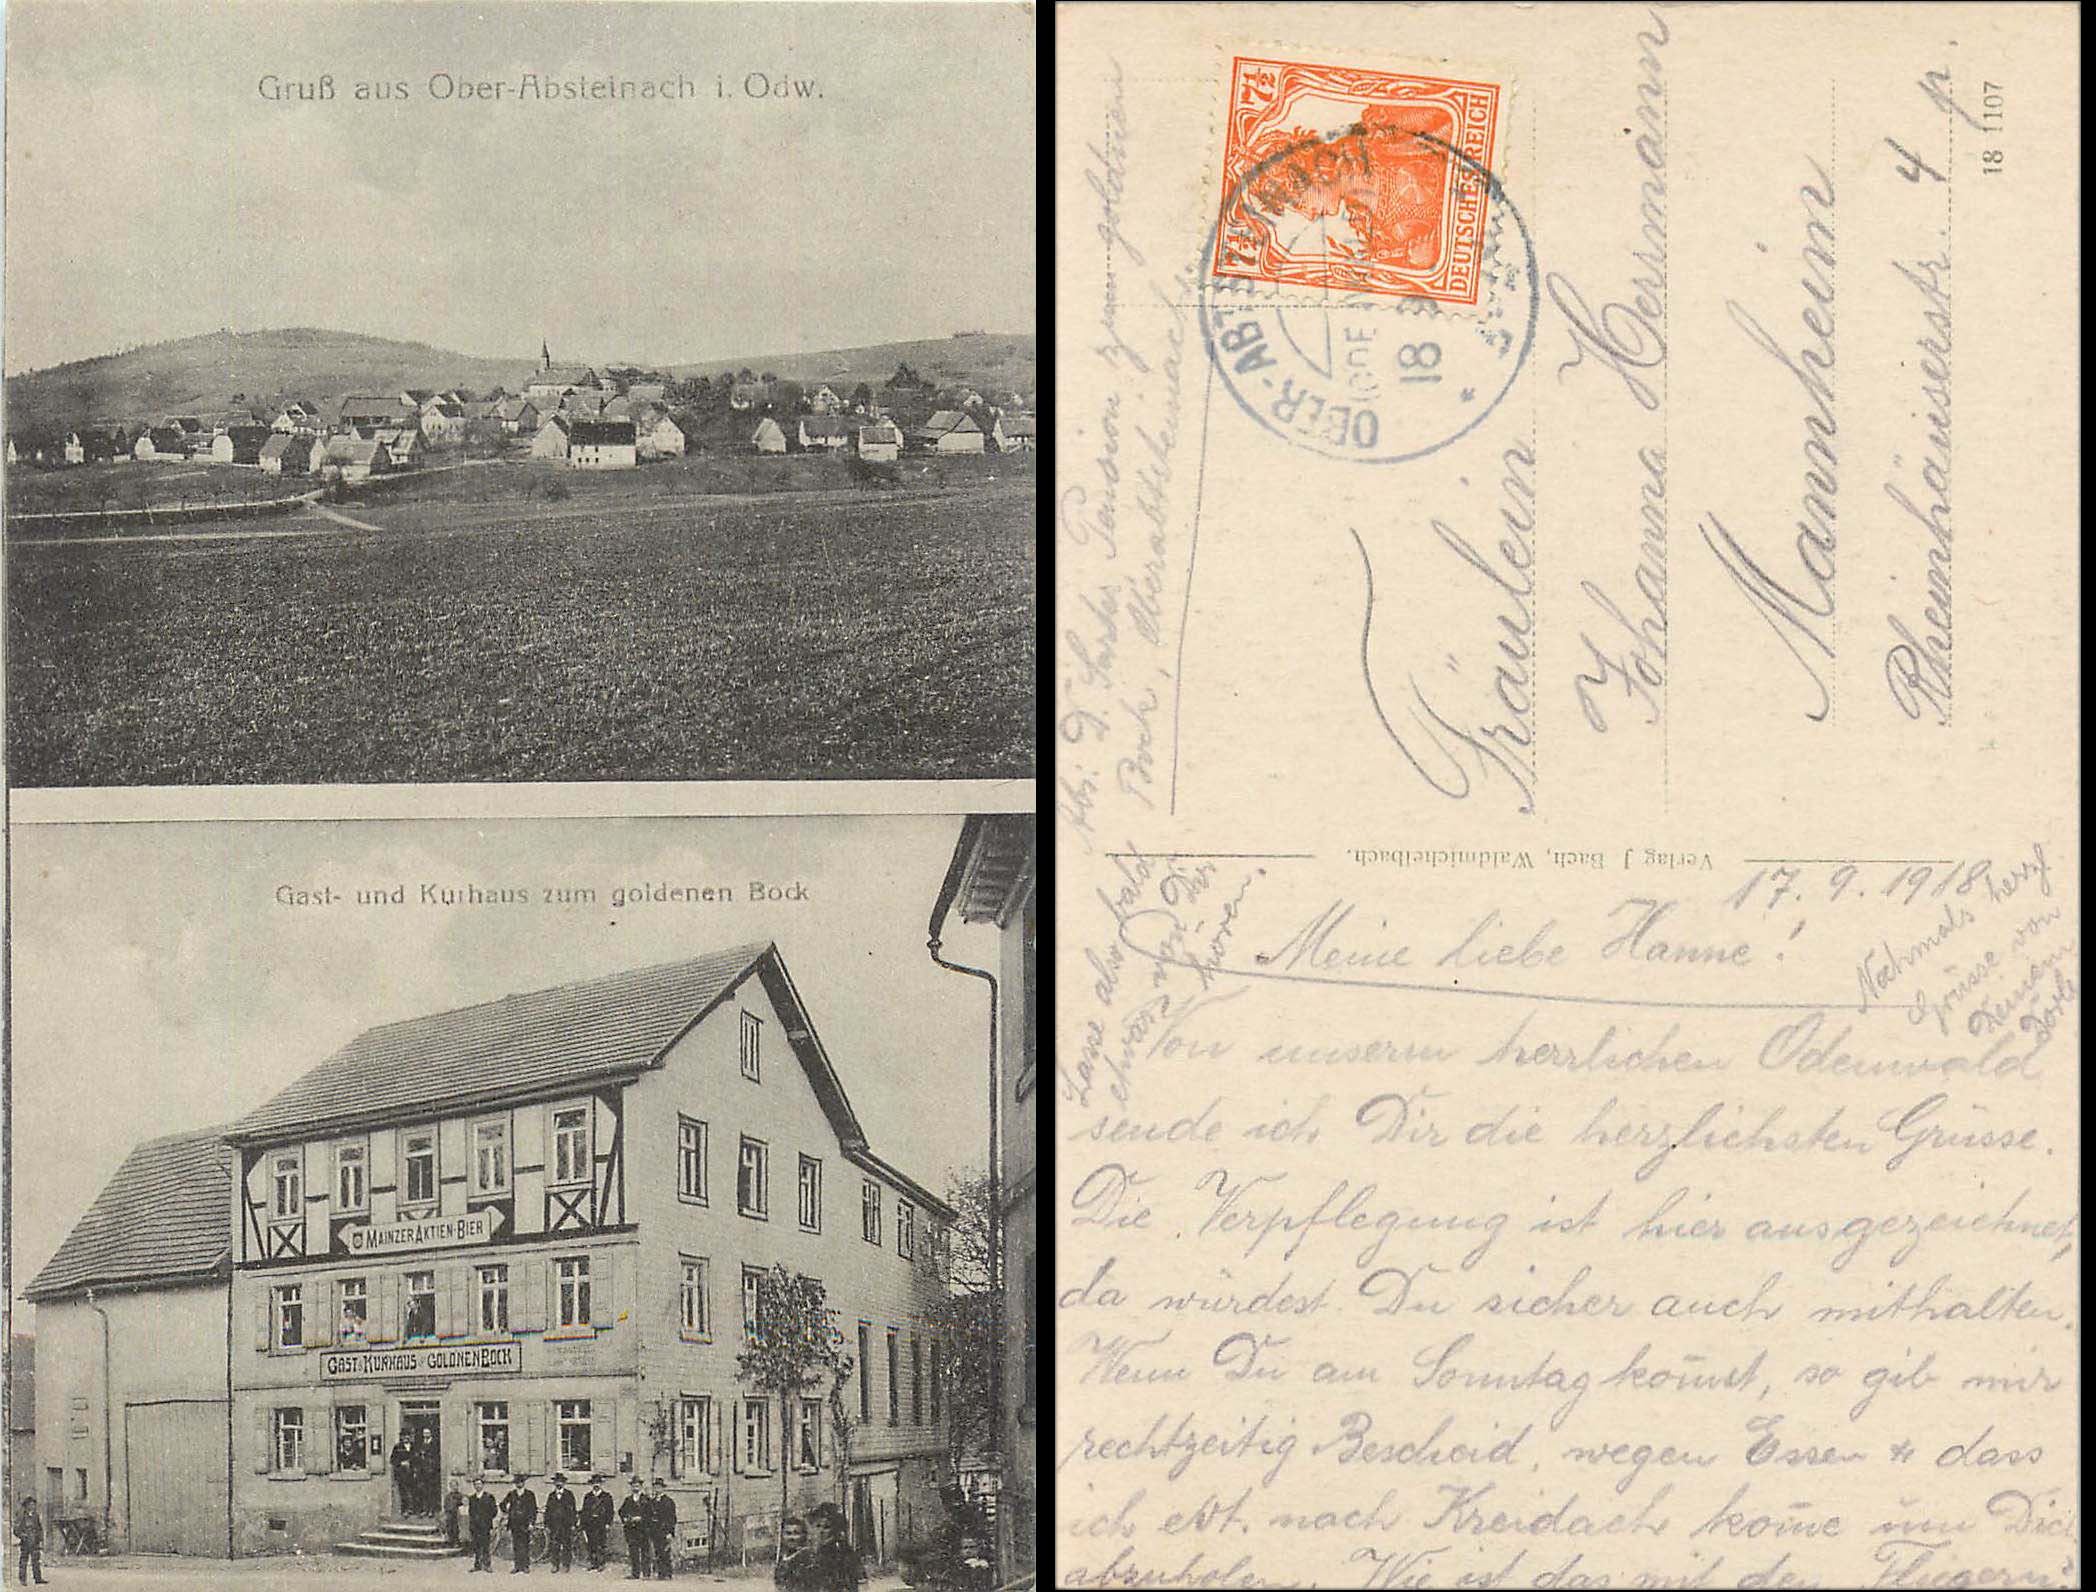 Gruß aus Ober-Absteinach i. Odw.
Gast- und Kurhaus zum goldenen Bock
MAINZER AKTIEN-BIER
GAST & KURHAUS Z. GOLDNEN BOCK
7½ 7½
DEUTSCHES REICH
OBER-ABTSTEINACH
18 9
18 1107
Fräulein
Johanna Herrmann
Mannheim
Rheinhäuserstr. 4 p.
Abs: D. Pension zum goldnen
Bock, Oberabtsteinach
Verlag J Bach, Waldmichelbach.
17. 9. 1918
Meine liebe Hanne!
Von unserm herrlichen Odenwald
sende ich Dir die herzlichsten Grüsse.
Die Verpflegung ist hier ausgezeichnet,
da würdest Du sicher auch mithalten.
Wenn Du am Sonntag kom̄st, so gib mir
rechtzeitig Bescheid, wegen Essen u dass
ich evt. nach Kreidach kom̄e um Dich
abzuholen. Wie ist das mit den Fliegern?
Lasse also bald
etwas von Dir
hören.
Nochmals herzl
Grüsse von
Deinem